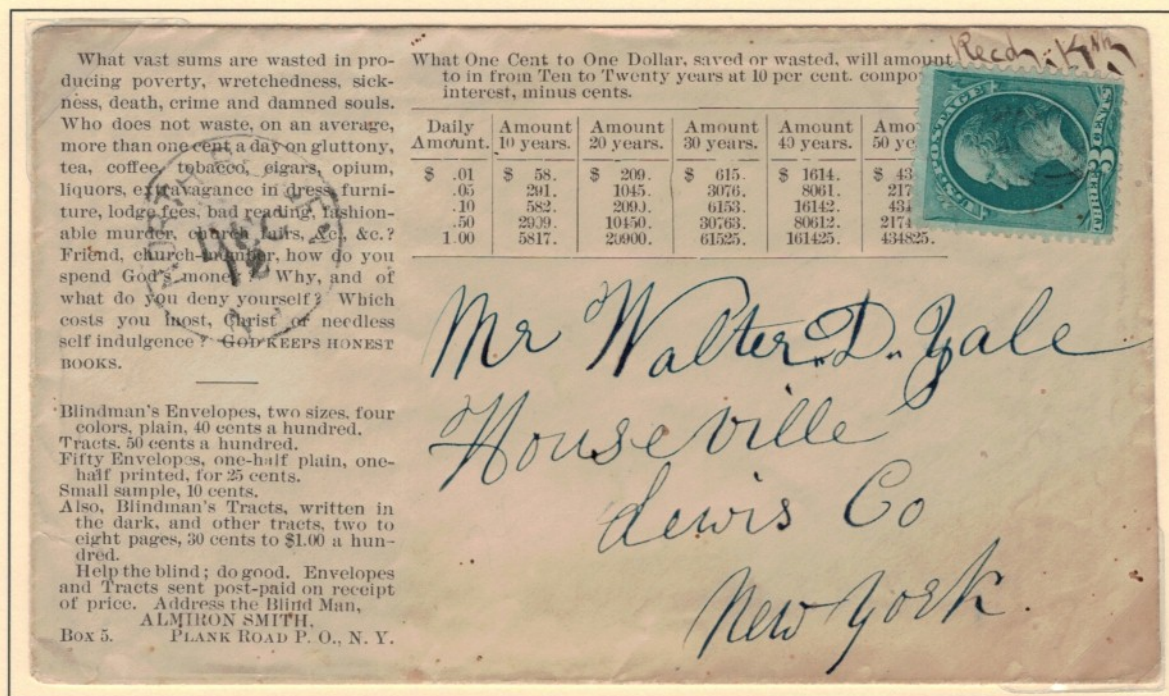 What vast sums are wasted in pro-
ducing poverty, wretchedness, sick-
ness, death, crime and damned souls.
Who does not waste, on an average,
more than one cent a day on gluttony,
tea, coffee, tobacco, cigars, opium,
liquors, extravagance in dress, furni-
ture, lodge fees, bad reading, fashion-
able murder, church fairs, &c., &c.?
Friend, church-member, how do you
spend God's money? Why, and of
what do you deny yourself? Which
costs you most, Christ or needless
self indulgence? GOD KEEPS HONEST
BOOKS.
Blindman's Envelopes, two sizes, four
colors, plain, 40 cents a hundred.
Tracts, 50 cents a hundred.
Fifty Envelopes, one-half plain, one-
half printed, for 25 cents.
Small sample, 10 cents.
Also, Blindman's Tracts, written in
the dark, and other tracts, two to
eight pages, 30 cents to $1.00 a hun-
dred.
Help the blind; do good. Envelopes
and Tracts sent post-paid on receipt
of price. Address the Blind Man,
ALMIRON SMITH,
Box 5. PLANK ROAD P. O., N. Y.
DEC
12
What One Cent to One Dollar, saved or wasted, will amount
to in from Ten to Twenty years at 10 per cent.
interest, minus cents.
Daily Amount Amount Amount Amount
Amount. 10 years. 20 years. 30 years. 40 years. 50
$ .01 $ 58. $ 209. $ 615. $ 1614. $
.05 291. 1045. 3076. 8061.
.10 582. 2090. 6153. 16142.
.50 2909. 10450. 30763. 80612.
1.00 5817. 20900. 61525. 161425. 434825.
Recd
U.S. POSTAGE
3
Mr Walter D. Yale
Houseville
Lewis Co
New York.